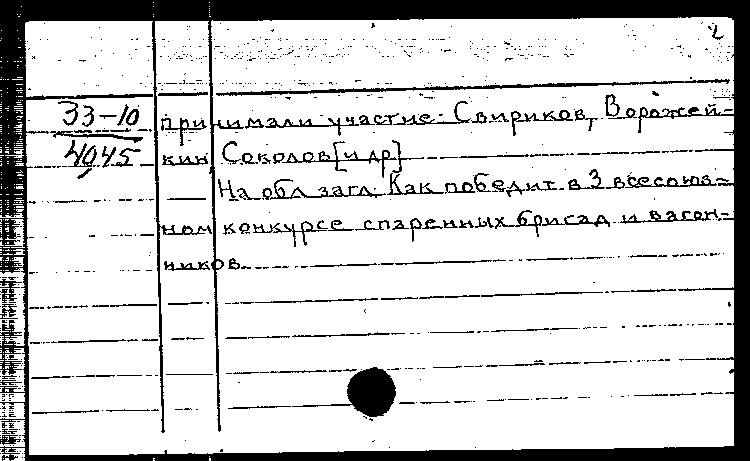 2
33-10
4045
принимали участие: Свириков, Ворожей-
кин, Соколов [и др]
На обл загл. Как победит в 3 всесоюз-
ном конкурсе спаренных бригад и вагон-
ников.